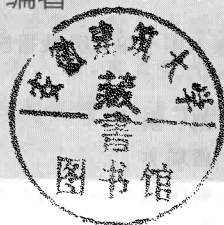 编著
安徽建筑大学
藏
書
图书馆